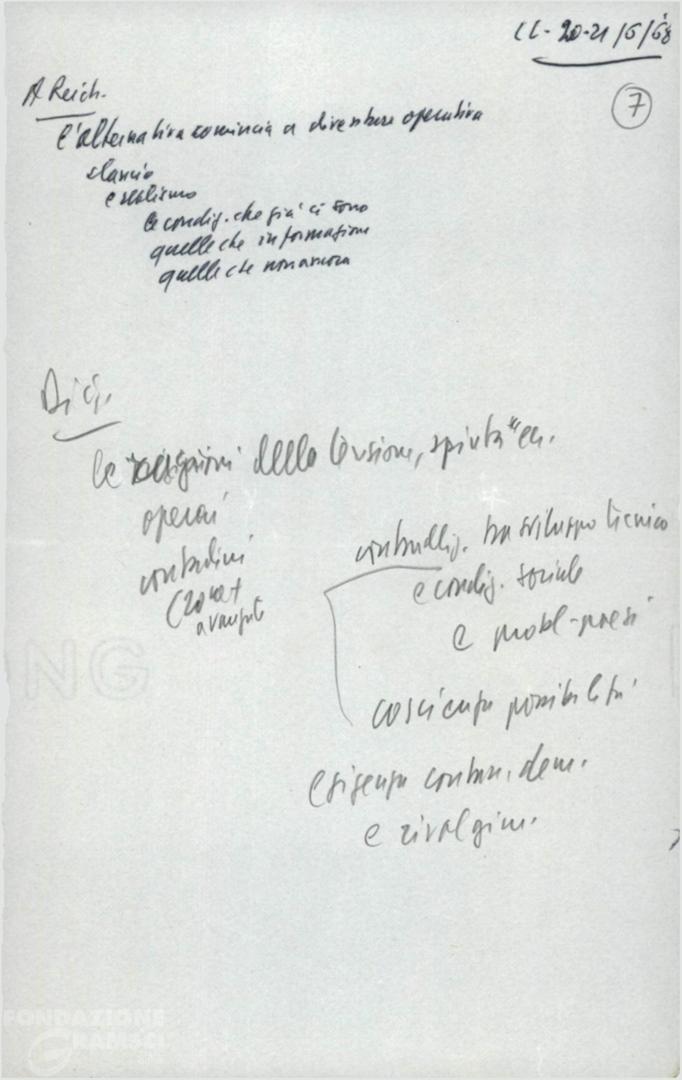 CC - 20-21/6/68
7
A Reich.
l'alternativa comincia a diventare operativa
slancio
e realismo
le condiz. che già ci sono
quelle che in formazione
quelle che non ancora
le ragioni della tensione, spinta ecc.
operai
contadini
(zone +
avanzate
contraddiz. tra sviluppo tecnico
e condiz. sociale
e probl. paesi
coscienza possibilità
esigenza dem.
e
NG
FONDAZIONE
GRAMSCI